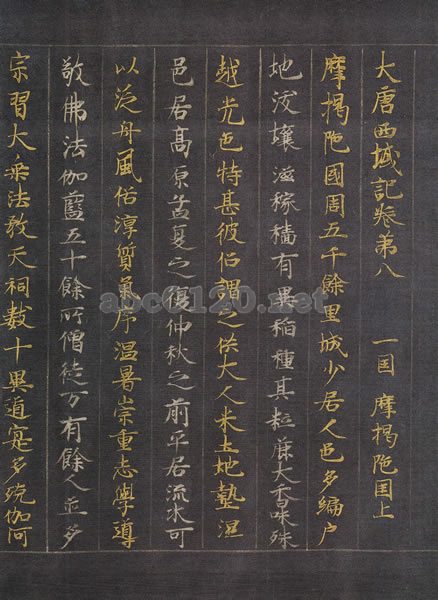 大唐西域記卷第八 一国 摩揭陁国上
摩揭陁國周五千餘里城少居人邑多編户
地沃壤滋稼穡有異稻種其粒麁大香味殊
越光色特甚彼俗謂之供大人米土地墊濕
邑居髙原孟夏之後仲秋之前平居流水可
以泛舟風俗淳質氣序温暑崇重志學尊
敬佛法伽藍五十餘所僧徒万有餘人並多
宗習大乘法教天祠數十異道寔多殑伽河
abc0120.net